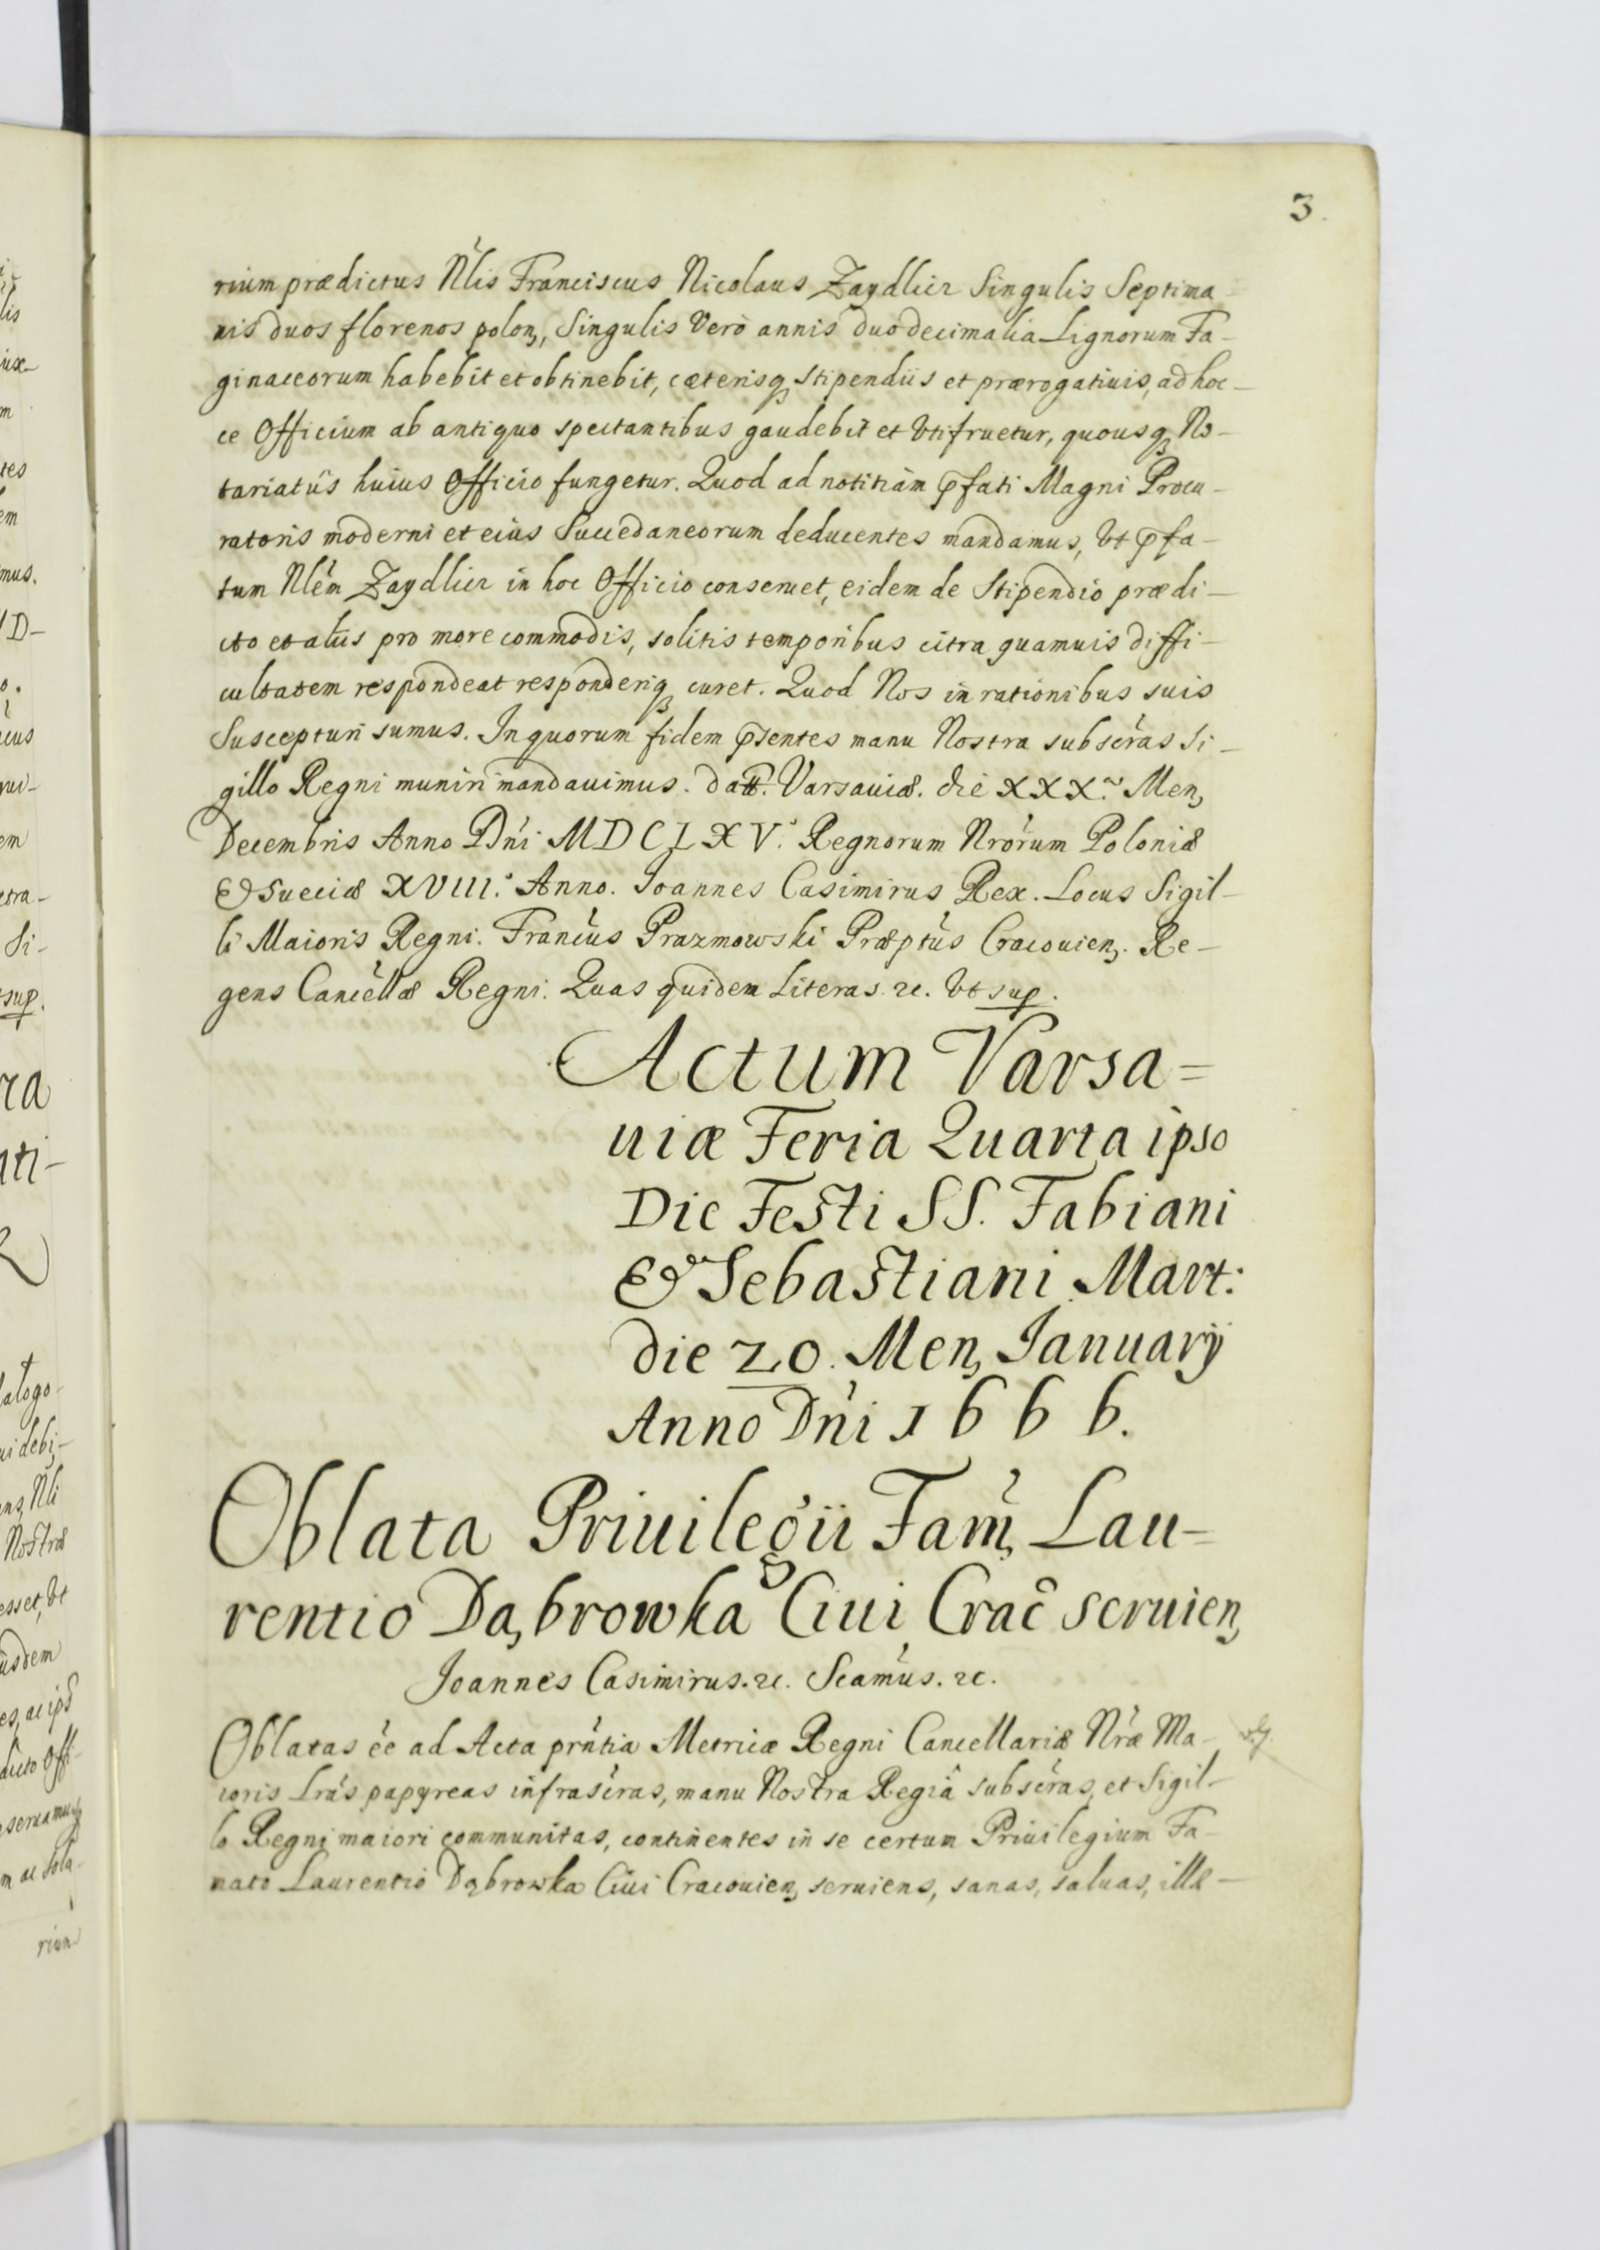 3.
rium prædictus Nlis Franciscus Nicolaus Zaydlicz Singulis Septima-
nis duos florenos polon, Singulis Verò annis duodecimalia Lignorum Fa-
ginaceorum habebit et obtinebit, cæterisq stipendiis et prærogatiuis, ad hoc-
ce Officium ab antiquo spectantibus gaudebit et Vtifruetur, quousq No-
tariatûs huius Officio fungetur. Quod ad notitiam pfati Magni Procu-
ratoris moderni et eius Succedaneorum deducentes mandamus, Vt pfa-
tum Nlem Zaydlicz in hoc Officio conseruet, eidem de Stipendio prædi-
cto et aliis pro more commodis, solitis temporibus citra quamuis diffi-
cultatem respondeat responderiq curet. Quod Nos in rationibus suis
Suscepturi sumus. In quorum fidem psentes manu Nostra subscras Si-
gillo Regni muniri mandauimus. datt. Varsauiæ. die XXX. Men,
Decembris Anno Dni MDCLXV. Regnorum Nrorum Poloniæ
& Sueciæ XVIII. Anno. Ioannes Casimirus Rex. Locus Sigil-
li Maioris Regni. Francus Prazmowski Præptus Cracouien. Re-
gens Cancellæ Regni. Quas quidem Literas. &c. Vt sup.
Actum Varsa=
uiæ Feria Quarta ipso
Die Festi SS. Fabiani
& Sebastiani Mart:
die 20. Men, Ianuarÿ
Anno Dni 1666.
Oblata Priuilegii Fam, Lau=
rentio Dąbrowka Ciui Crac seruien,
Joannes Casimirus. &c. Scamus. &c.
Oblatas ee ad Acta prntia Metricæ Regni Cancellariæ Nræ Ma-
ioris Lras papyreas infrascras, manu Nostra Regiâ subscras, et Sigil-
lo Regni maiori communitas, continentes in se certum Priuilegium Fa-
mato Laurentio Dąbrowka Ciui Cracouien, seruiens, sanas, saluas, illæ-